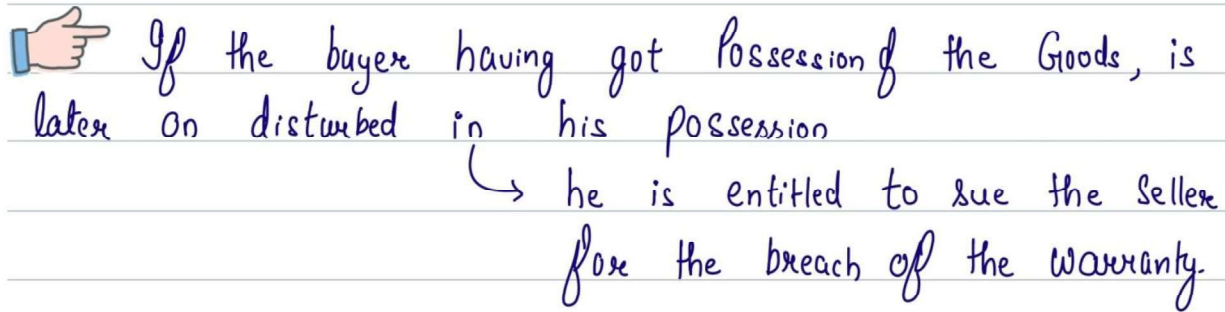 If the buyer having got Possession of the Goods, is
later on disturbed in his possession
he is entitled to sue the Seller
for the breach of the warranty.